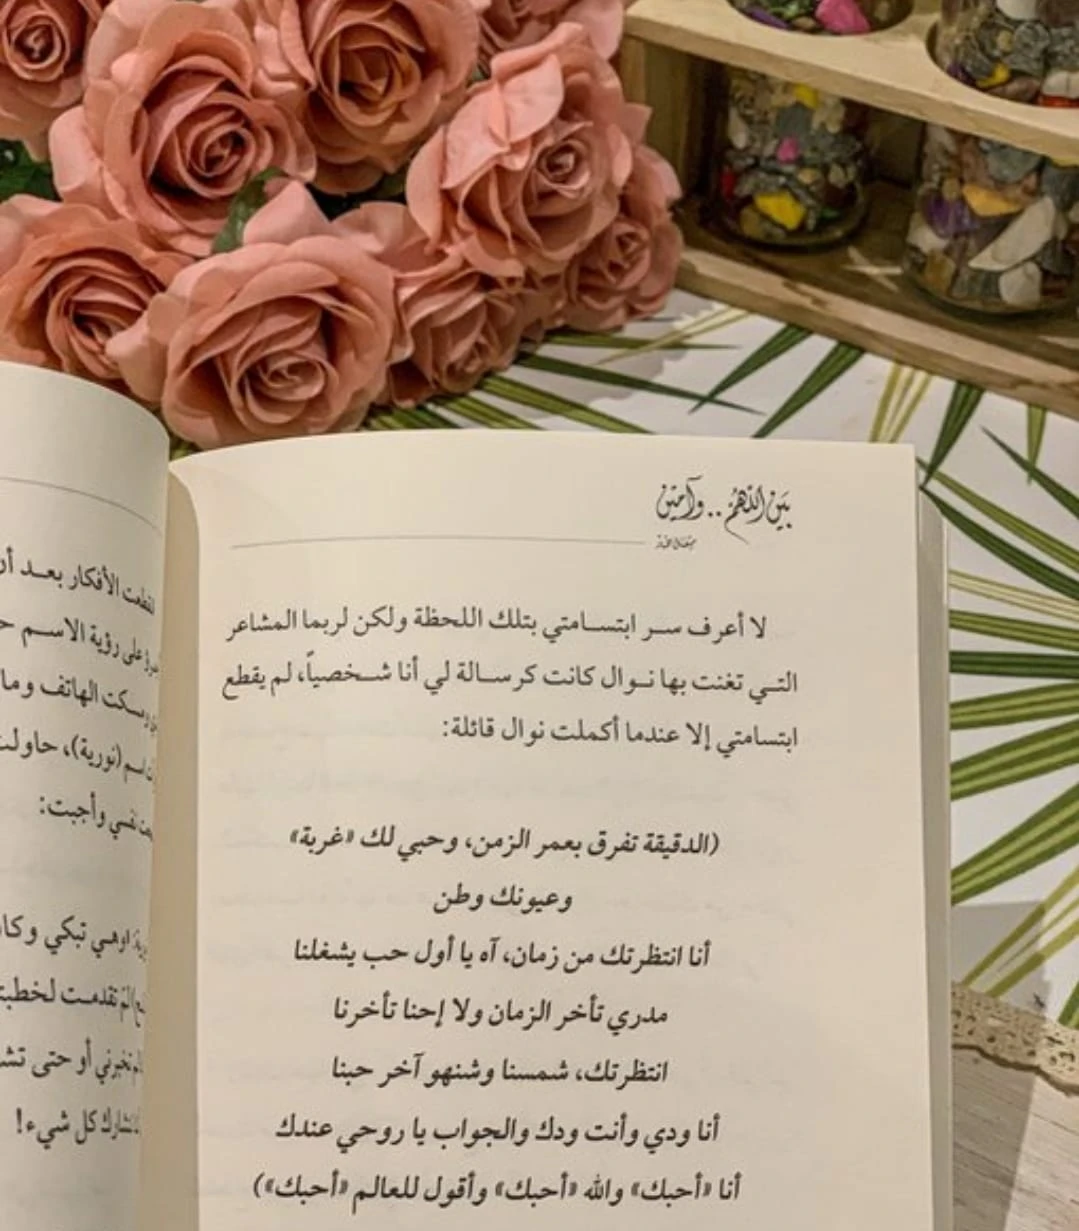 بَين اللهُمّ .. وآمين
لا أعرف سر ابتسامتي بتلك اللحظة ولكن لربما المشاعر
التي تغنت بها نوال كانت كرسالة لي أنا شخصياً، لم يقطع
ابتسامتي إلا عندما أكملت نوال قائلة:
(الدقيقة تفرق بعمر الزمن، وحبي لك «غربة»
وعيونك وطن
أنا انتظرتك من زمان، آه يا أول حب يشغلنا
مدري تأخر الزمان ولا إحنا تأخرنا
انتظرتك، شمسنا وشنهو آخر حبنا
أنا ودي وأنت ودك والجواب يا روحي عندك
أنا «أحبك» والله «أحبك» وأقول للعالم «أحبك»)
الأفكار بعد أن
على رؤية الاسم
الهاتف وما
اسم (نورية)، حاولت
نفسي وأجبت:
وهي تبكي
تقدمت
أو حتى
كل شيء!